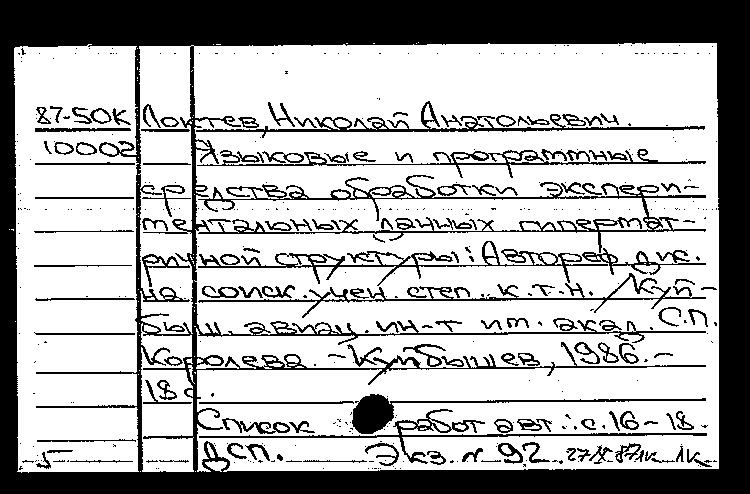 87-50К Локтев, Николай Анатольевич.
10002 Языковые и программные
средства обработки экспери-
ментальных данных гипермат-
ричной структуры: Автореф. дис.
на соиск. учен. степ. к.т.н. Куй-
быш. авиац. ин-т им. акад. С.П.
Королева. - Куйбышев, 1986. -
18 с.
Список работ авт.: с. 16-18.
5 ДСП. Экз. № 92 1к